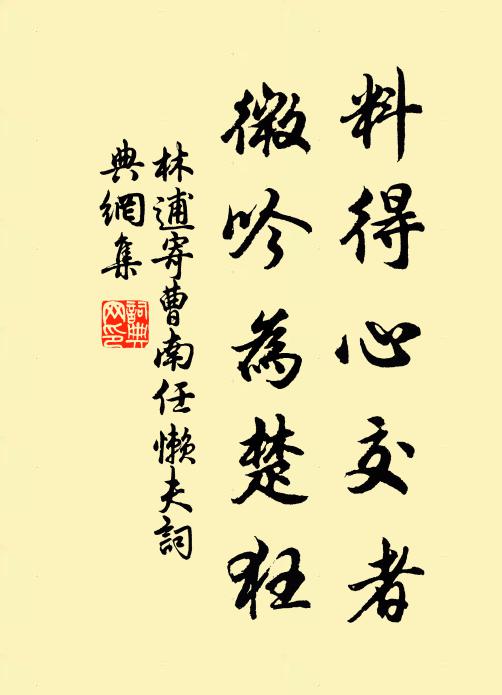 料得心交者
微吟為楚狂
林逋寄曹南任懶夫詞
典網集
詞典
网印